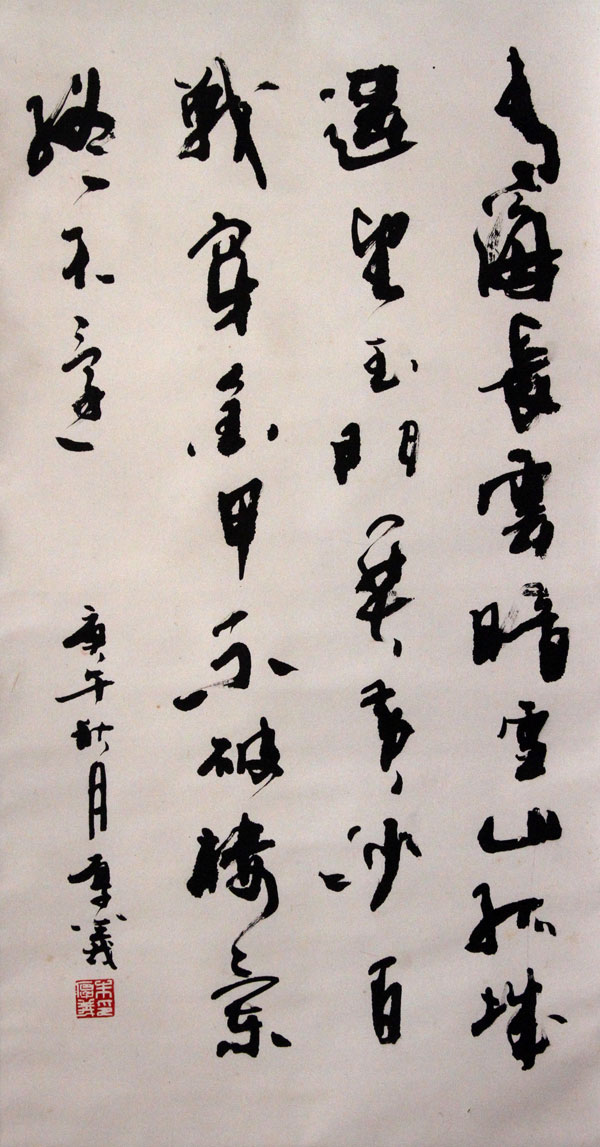 青海長雲暗雪山孤城
遥望玉門關黄沙百
戰穿金甲不破樓蘭
終不還
庚午秋月厚義